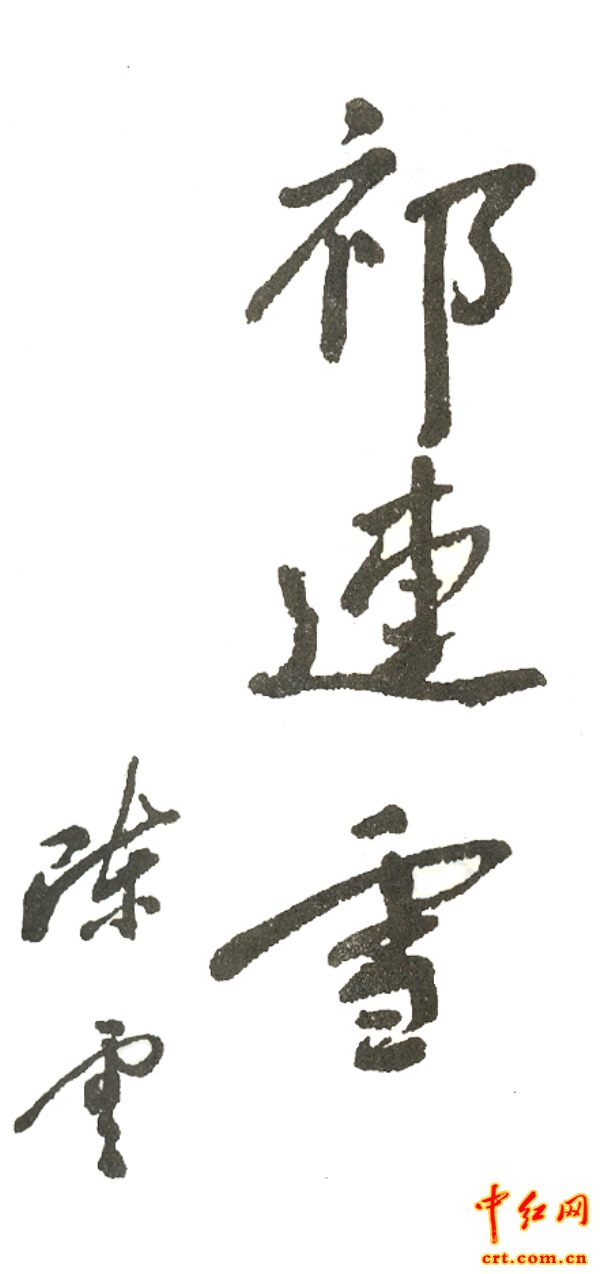 祁連雪
陳雲
中红网
crt.com.cn